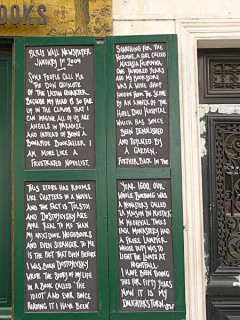 OOKS
PARIS WALL NEWSPAPER
JANUARY 1ST 2004
SOME PEOPLE CALL ME
THE DON QUIXOTE
OF THE LATIN QUARTER
BECAUSE MY HEAD IS SO FAR
UP IN THE CLOUDS THAT I
CAN IMAGINE ALL OF US ARE
ANGELS IN PARADISE.
AND INSTEAD OF BEING A
BONAFIDE BOOKSELLER I
AM MORE LIKE A
FRUSTRATED NOVELIST
THIS STORE HAS ROOMS
LIKE CHAPTERS IN A NOVEL
AND THE FACT IS TOLSTOI
AND DOSTOYEVSKY ARE
MORE REAL TO ME THAN
MY NEXT DOOR NEIGHBORS
AND EVEN STRANGER TO ME
IS THE FACT THAT EVEN BEFORE
I WAS BORN DOSTOYEVSKY
WROTE THE STORY OF MY LIFE
IN A BOOK CALLED 'THE
IDIOT' AND EVER SINCE
READING IT I HAVE BEEN
SEARCHING FOR THE
HEROINE, A GIRL CALLED
NASTASIA FILIPOVNA.
ONE HUNDRED YEARS
AGO MY BOOKSTORE
WAS A WINE SHOP
HIDDEN FROM THE SEINE
BY AN ANNEX OF THE
HOTEL DIEU HOSPITAL
WHICH HAS SINCE
BEEN DEMOLISHED
AND REPLACED BY
A GARDEN.
FURTHER BACK IN THE
YEAR 1600, OUR
WHOLE BUILDING WAS
A MONASTERY CALLED
LA MAISON DU MUSTIER
IN MEDIEVAL TIMES
EACH MONASTERY HAD
A FRERE LAMPIER
WHOSE DUTY WAS TO
LIGHT THE LAMPS AT
NIGHTFALL.
I HAVE BEEN DOING
THIS FOR FIFTY YEARS
NOW IT IS MY
DAUGHTER'S TURN. GW